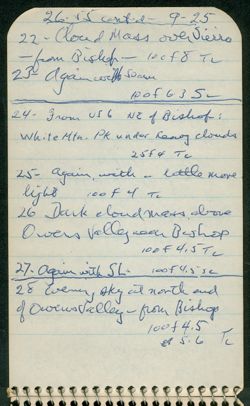 26-55 cont'd - 9-25
22- Cloud Mass over Sierra
- from Bishop - 100 f 8 TL
23- Again with 50mm
100 f 6.3 SL
24- From US 6 NE of Bishop:
White Mtn. Pk under heavy clouds
25 f 4 TL
25- Again, with a little more
light 100 f 4 TL
26 Dark cloud mass above
Owens Valley near Bishop
100 f 4.5 TL
27- Again with SL. 100 f 4.5 SL
28 Evening sky at north end
of Owens Valley - from Bishop
100 f 4.5
5.6 TL